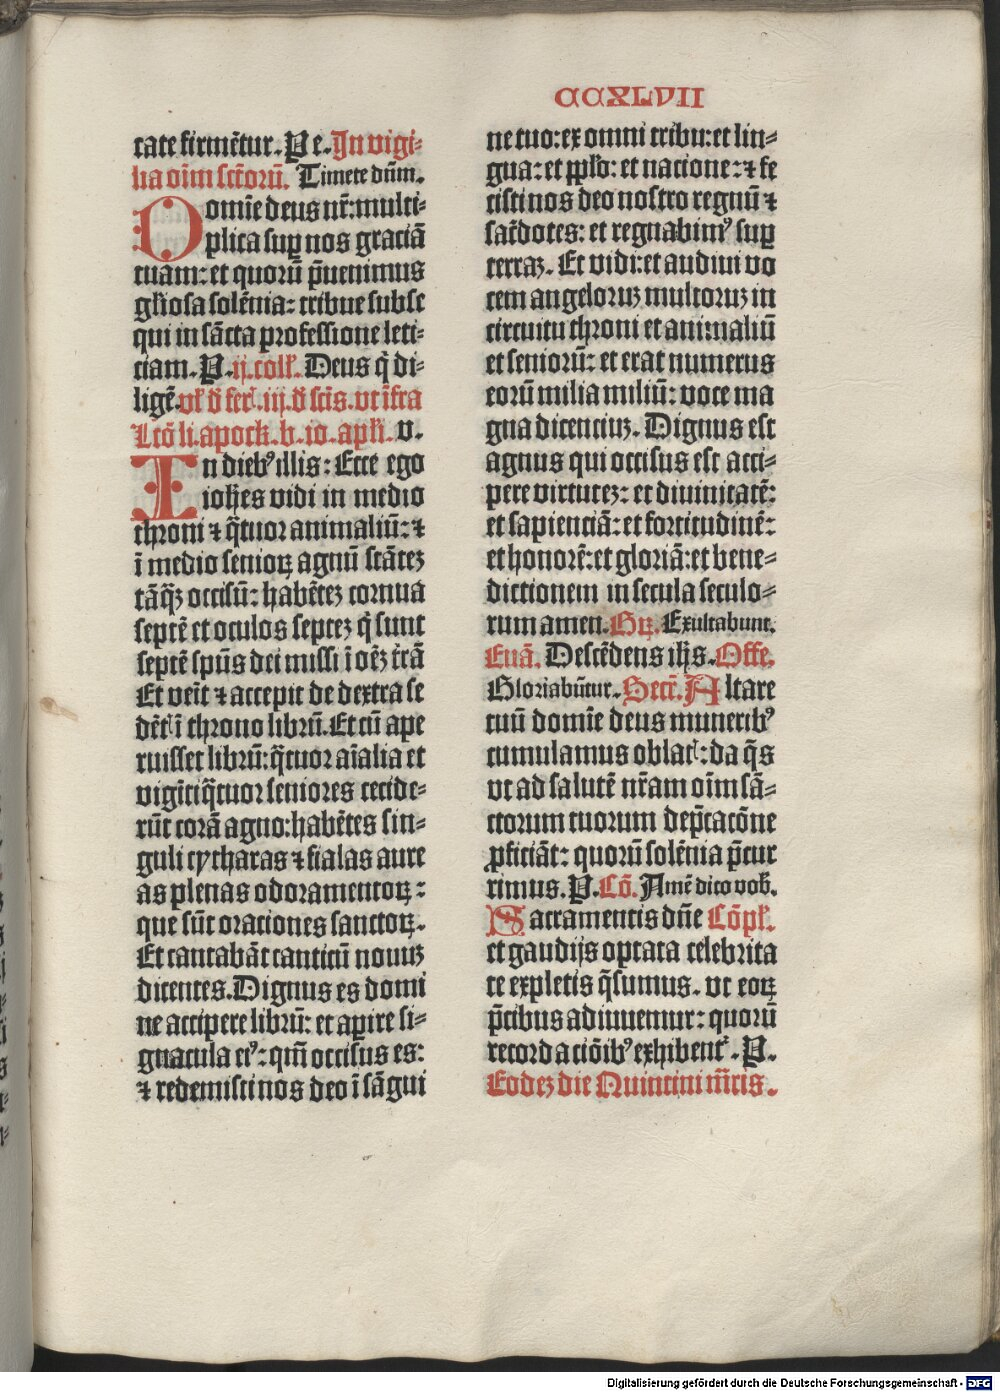 CCXLVII
tate firmẽtur. P e. In vigi⸗
lia oĩm sctõrũ. Timete dñm.
Domĩe deus nr̃: multi⸗
plica suꝑ nos graciã
tuam: et quorũ p̃uenimus
gl̃iosa solẽnia: tribue subse
qui in sãcta professione leti⸗
ciam. P. ij. coll̃. Deus q̃ di⸗
ligẽ. vl̃ d̃ ferꝭ. iij. d̃ scĩs. vt ĩfra
Lcõ li. apock. b. io. apl̃i. v.
In diebꝰ illis: Ecce ego
ioh̃es vidi in medio
throni ⁊ q̃tuor animaliũ: ⁊
ĩ medio senioꝝ agnũ stãteꝫ
tãq̃ꝫ occisũ: habẽteꝫ cornua
septẽ et oculos septeꝫ q̃ sunt
septẽ spũs dei missi ĩ oẽꝫ tr̃ã
Et venĩt ⁊ accepit de dextra se
dẽtꝭ ĩ throno librũ. Et cũ ape
ruisset librũ: q̃tuor aĩalia et
viginĩti q̃tuor seniores cecide⸗
rũt corã agno: habẽtes sin⸗
guli cytharas ⁊ fialas aure
as plenas odoramentoꝝ:
que sũt oraciones sanctoꝝ.
Et cantabãt canticũ nouuꝫ
dicentes. Dignus es domi
ne accipere librũ: et aꝑire si⸗
gnacula eiꝰ: qm̃ occisus es:
⁊ redemisti nos deo ĩ sãgui
ne tuo: ex omni tribu: et lin⸗
gua: et pplo: et nacione: ⁊ fe
cisti nos deo nostro regnũ ⁊
sac̃dotes: et regnabimꝰ suꝑ
terraꝫ. Et vidi: et audiui vo
cem angeloruꝫ multoruꝫ in
circuitu throni et animaliũ
et seniorũ: et erat numerus
eorũ milia miliũ: voce ma
gna dicenciuꝫ. Dignus est
agnus qui occisus est acci⸗
pere virtuteꝫ: et diuinitatẽ:
et sapienciã: et fortitudinẽ:
et honorẽ: et gloriã: et bene⸗
dictionem in secula seculo⸗
rum amen. Gꝝ. Exultabunt.
Euã. Descẽdens ih̃s. Offe.
Gloriabũtur. Secr̃. Altare
tuũ domĩe deus muneribꝰ
cumulamus oblatꝭ: da q̃s
vt ad salutẽ nr̃am oĩm sã⸗
ctorum tuorum dep̃cacõne
ꝓficiãt: quorũ solẽnia p̃cur
rimus. P. Cõ. Amẽ dico vob̃.
Sacramentis dñe Cõpl̃.
et gaudijs optata celebrita
te expletis q̃sumus. vt eoꝝ
p̃cibus adiuuemur: quorũ
recordaciõibꝰ exhibent᷑. P.
Eodeꝫ die Quintini mr̃is.
Digitalisierung gefördert durch die Deutsche Forschungsgemeinschaft - DFG